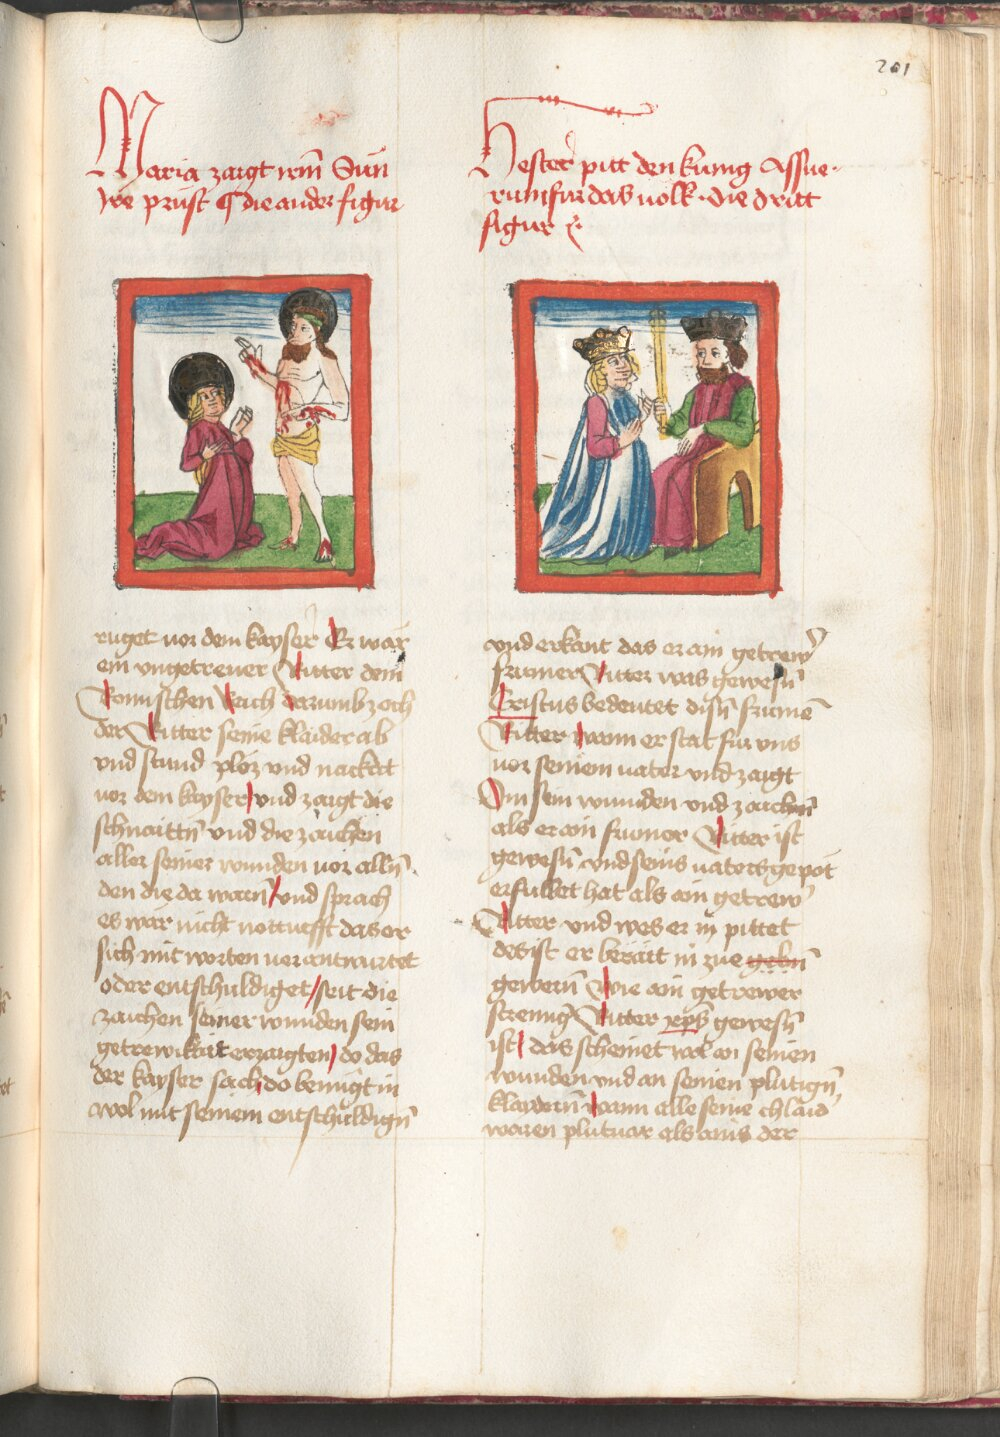 201
Maria zaigt irm Sun
ire prüst ¶ die ander figur
ruget vor dem kayser Er wär
ein vngetrewer Ritter dem
Romischen Reich darumb zoch
der Ritter seine klaider ab
vnd stund ploz vnd nackat
vor dem kayser vnd zaigt die
schnaittn̄ vnd die zaichen
aller seiner wunden vor alln̄
den die da warn̄ / vnd sprach
es wär nicht notturfft das er
sich mit worten verantwurtet
oder entschuldiget / seit die
zaichen seiner wunden sein
getrewikait erzaigten / do das
der kayser sach do benügt in
wol mit seinem entschuldign̄
Hester pitt den kunig Assue-
rum fur das volk · die dritt
figur
vnd erkant das er ain getrew̄
frumer Ritter was gewesn̄
Cristus bedeutet disn̄ frumē
Ritter wann er stat fur vns
vor seinem vater vnd zaigt
Im sein wunden vnd zaichn̄
als er ain frumer Ritter ist
gewesn̄ vnd seins vaters gepot
erfullet hat als ain getrew̄
Ritter vnd wes er in pittet
des ist er berait in zue gebn̄
gewern̄ Wie ain getrewer
streng Ritter xp̄s gewesn̄
ist / das scheinet wol an seinen
wunden vnd an seinen plutign̄
klaidern̄ wann alle seine chlaid̄
waren plutuar als ains der